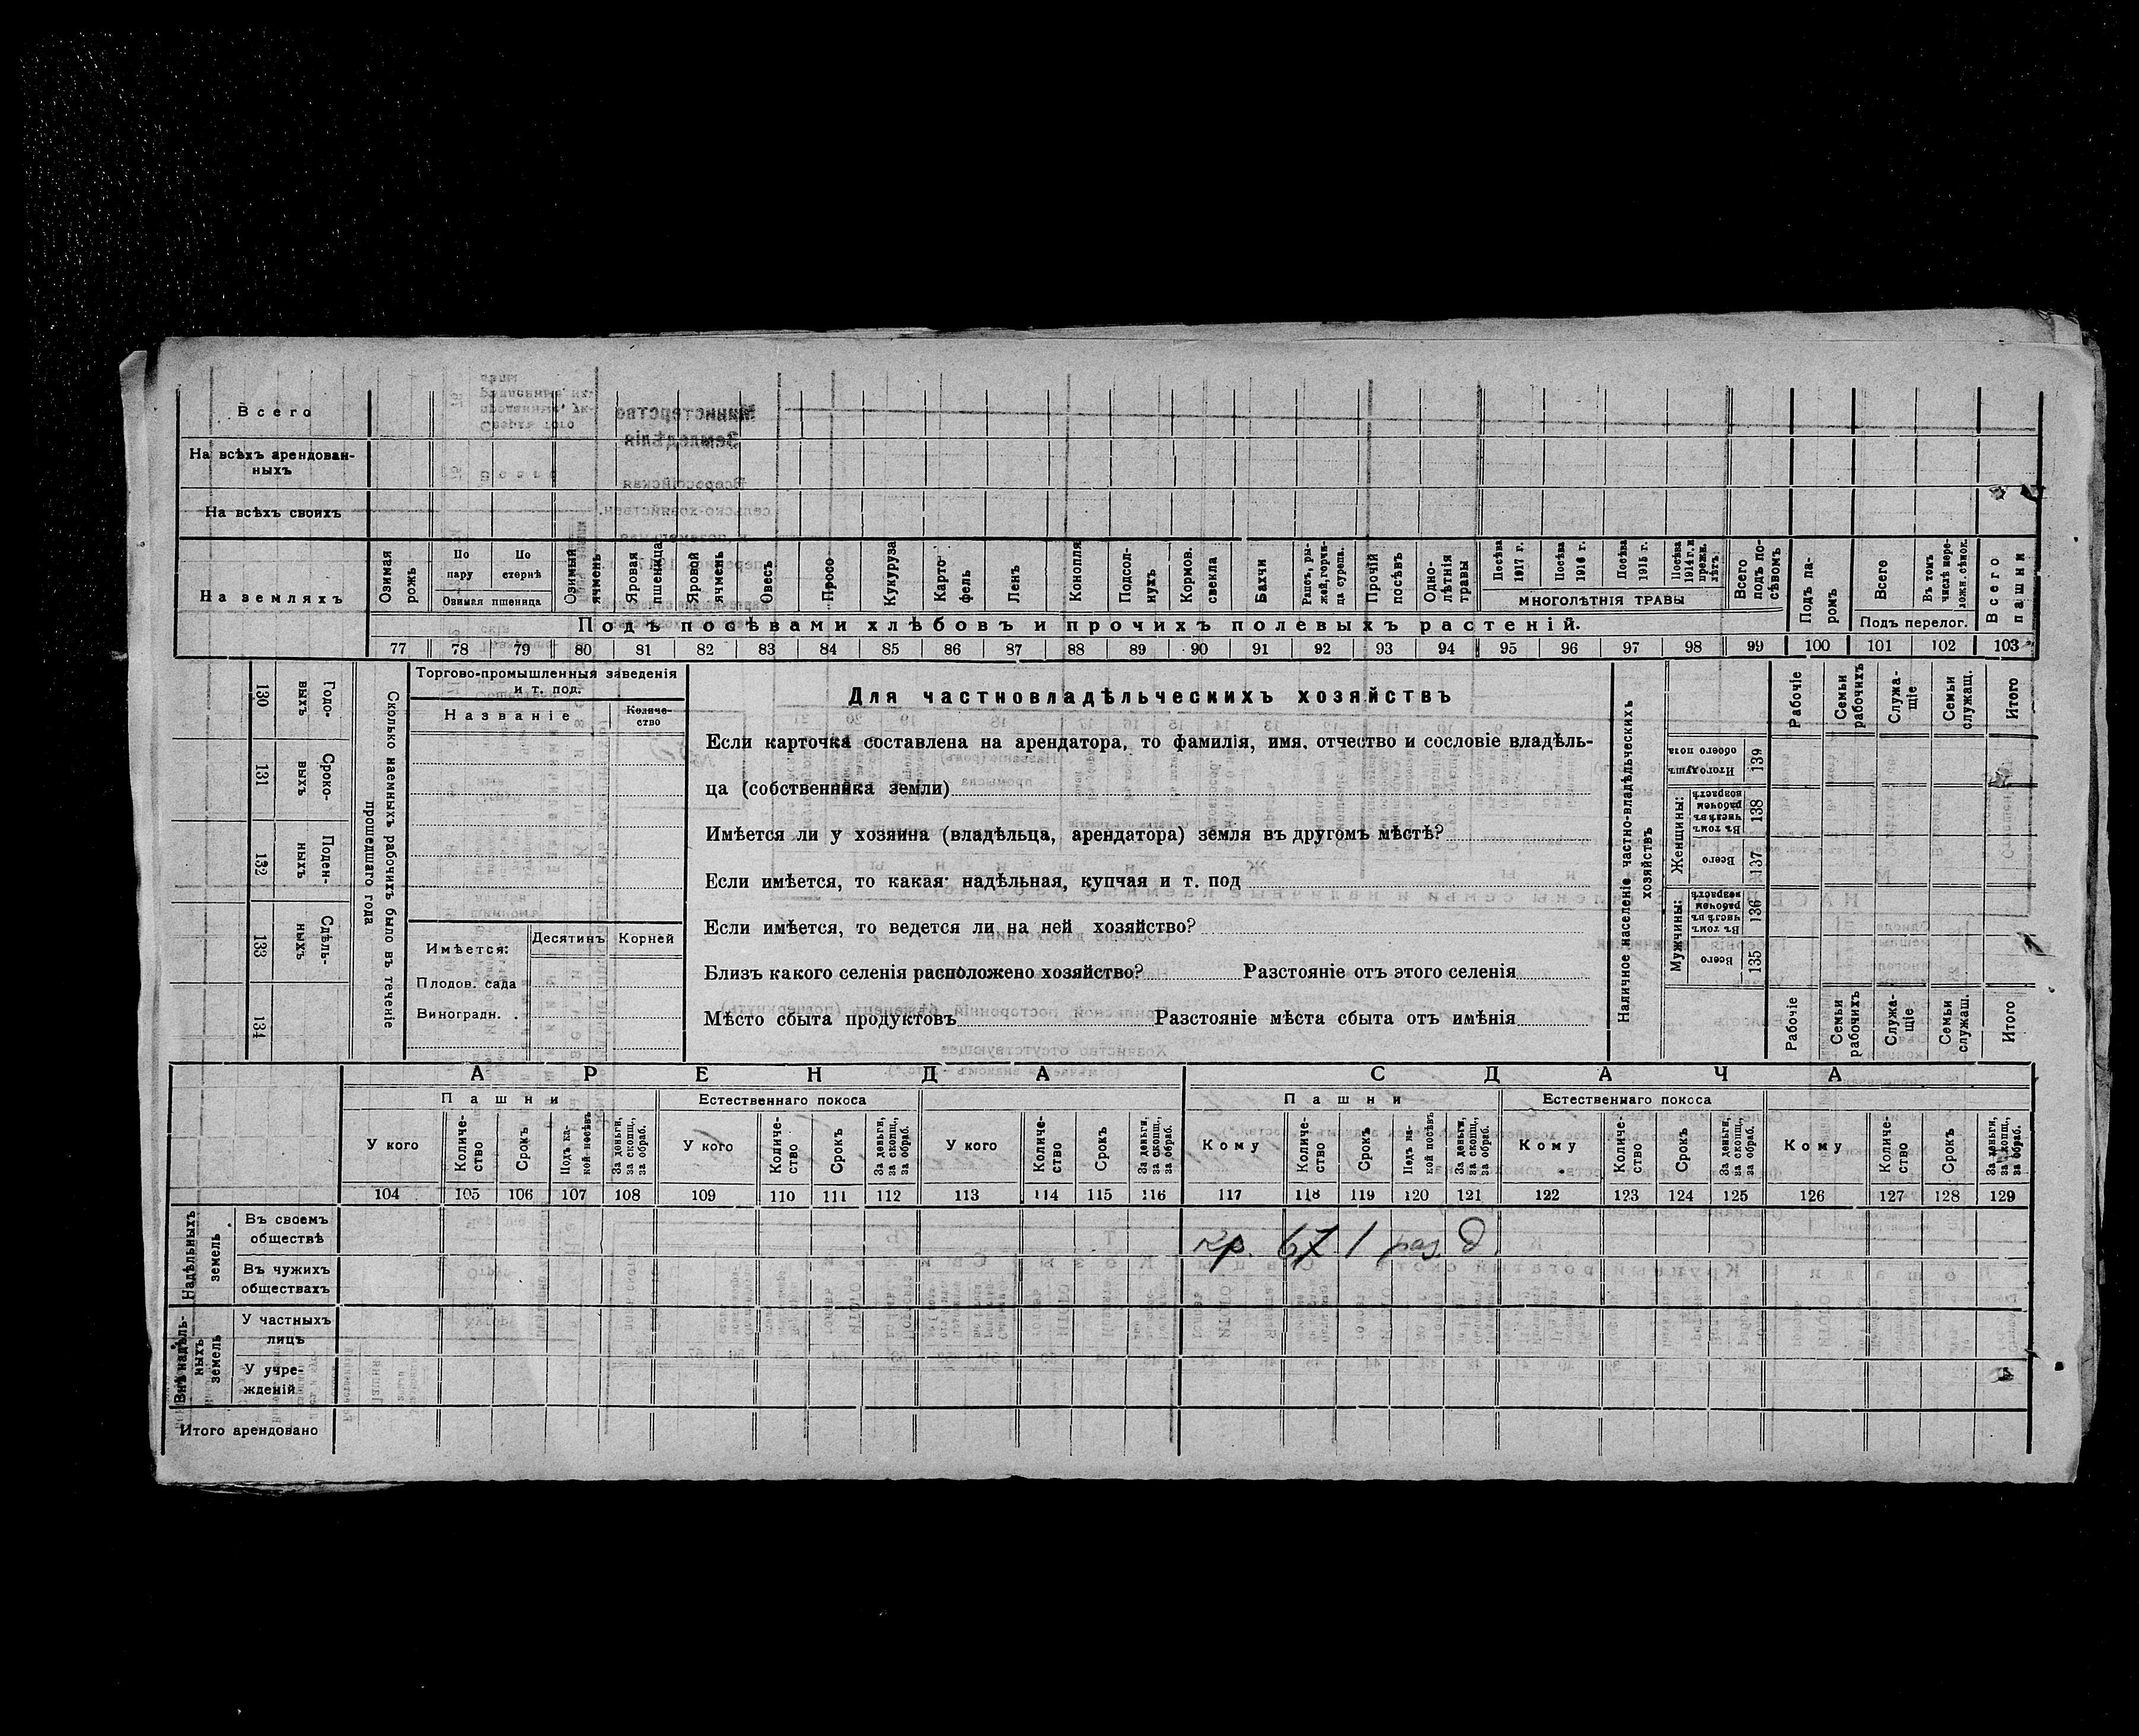 Всего
На всѣхъ арендован-
ныхъ
На всѣхъ своихъ
На земляхъ
Озимая рожь
По пару
По стернѣ
Озимая пшеница
Озимый ячмень
Яровая пшеница
Яровой ячмень
Овесъ
Просо
Кукуруза
Карто-фель
Ленъ
Конопля
Подсол-нухъ
Кормов. свекла
Бахчи
Рапсъ, ры-жей, горчи-ца сурепа.
Прочій посѣвъ
Одно-лѣтнія травы
Посѣва 1917 г.
Посѣва 1916 г.
Посѣва 1915 г.
Посѣва 1914 г. и прежн. лѣтъ
МНОГОЛѢТНІЯ ТРАВЫ
Всего подъ по-сѣвомъ
Подъ па-ромъ
Всего
Въ томъ числѣ пере-ложн. сѣнок.
Подъ перелог.
Всего пашни
Подъ посѣвами хлѣбовъ и прочихъ полевыхъ растеній.
77 78 79 80 81 82 83 84 85 86 87 88 89 90 91 92 93 94 95 96 97 98 99 100 101 102 103
130 Годо-выхъ
131 Сроко-выхъ
132 Поден-ныхъ
133 Сдѣль-ныхъ
134
Сколько наемныхъ рабочихъ было въ теченіе
прошедшаго года
Торгово-промышленныя заведенія
и т. под.
Названіе
Количе-ство
Имѣется:
Десятинъ
Корней
Плодов. сада
Виноградн.
Для частновладѣльческихъ хозяйствъ
Если карточка составлена на арендатора, то фамилія, имя, отчество и сословіе владѣль-
ца (собственника земли)
Имѣется ли у хозяина (владѣльца, арендатора) земля въ другомъ мѣстѣ?
Если имѣется, то какая: надѣльная, купчая и т. под
Если имѣется, то ведется ли на ней хозяйство?
Близъ какого селенія расположено хозяйство? Разстояніе отъ этого селенія
Мѣсто сбыта продуктовъ Разстояніе мѣста сбыта отъ имѣнія
Наличное населеніе частно-владѣльческихъ
хозяйствъ
Рабочіе
Семьи рабочихъ
Служа-щіе
Семьи служащ.
Итого
Итого душъ обоего пола 139
Женщины:
Въ томъ числѣ въ рабочемъ возрастѣ 138
Всего 137
Мужчины:
Въ томъ числѣ въ рабочем возрастѣ 136
Всего 135
Рабочіе
Семьи рабочихъ
Служа-щіе
Семьи служащ.
Итого
АРЕНДА
СДАЧА
Пашни
Естественнаго покоса
Пашни
Естественнаго покоса
У кого
Количе-ство
Срокъ
Подъ ка-кой посѣвъ
За деньги, за скопщ., за обраб.
У кого
Количе-ство
Срокъ
За деньги, за скопщ., за обраб.
У кого
Количе-ство
Срокъ
За деньги, за скопщ., за обраб.
Кому
Количе-ство
Срокъ
Подъ ка-кой посѣвъ
За деньги, за скопщ., за обраб.
Кому
Количе-ство
Срокъ
За деньги, за скопщ., за обраб.
Кому
Количе-ство
Срокъ
За деньги, за скопщ., за обраб.
104 105 106 107 108 109 110 111 112 113 114 115 116 117 118 119 120 121 122 123 124 125 126 127 128 129
Надѣльныхъ земель
Въ своемъ
обществѣ
кр. 1 раз. д
Въ чужихъ
обществахъ
Внѣнадѣль-ныхъ земель
У частныхъ
лицъ
У учре-
жденій
Итого арендовано